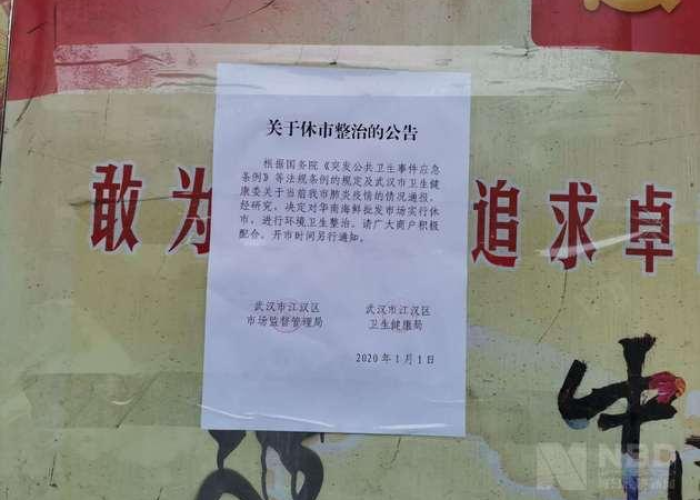 关于休市整治的公告
根据国务院《突发公共卫生事件应急
条例》等法规条例的规定及武汉市卫生健
康委关于当前我市肺炎疫情的情况通报,
经研究,决定对华南海鲜批发市场实行休
市,进行环境卫生整治。请广大商户积极
配合。开市时间另行通知。
武汉市江汉区
市场监督管理局
武汉市江汉区
卫生健康局
2020年1月1日
敢为
追求卓
NBD